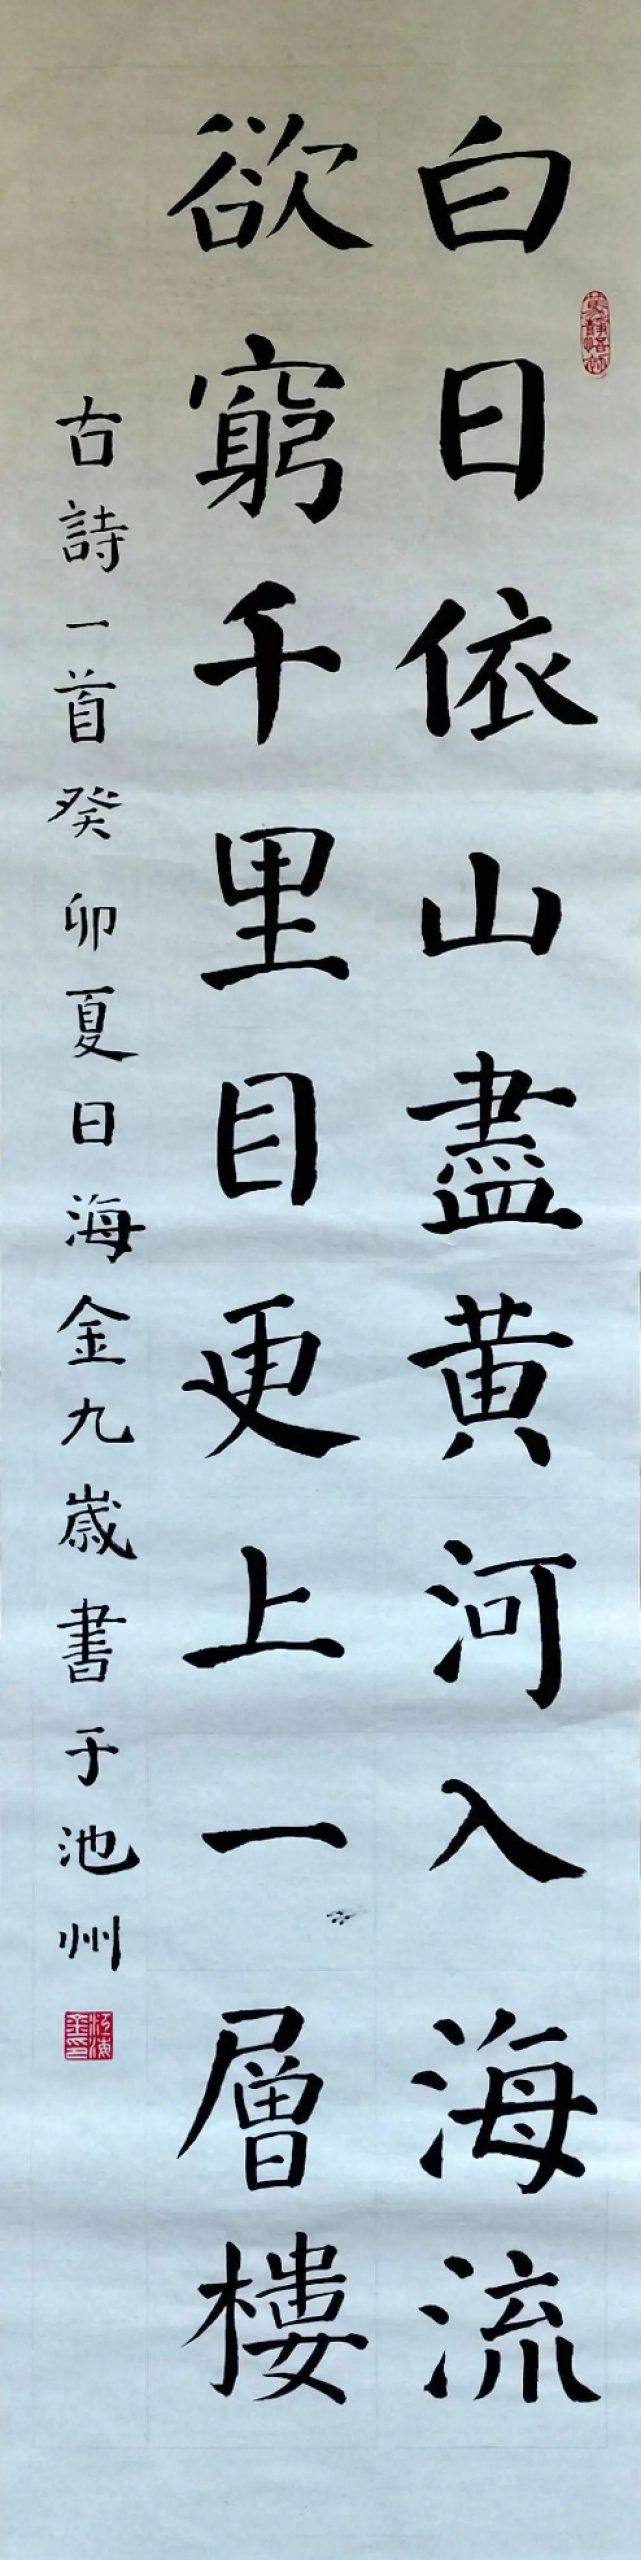 白日依山盡黄河入海流
欲窮千里目更上一層樓
古詩一首癸卯夏日海金九歲書于池州
江海金印